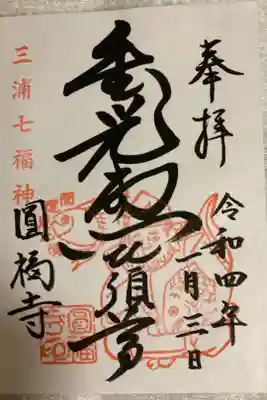 奉拝
令和四年
一月三日
金光恵比須尊
三浦七福神
圓福寺